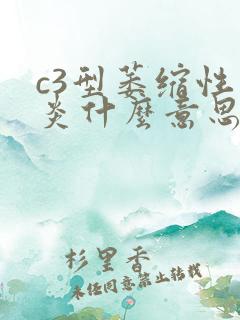 c3型萎缩性
炎什麼意思
杉里香
未经同意禁止转载